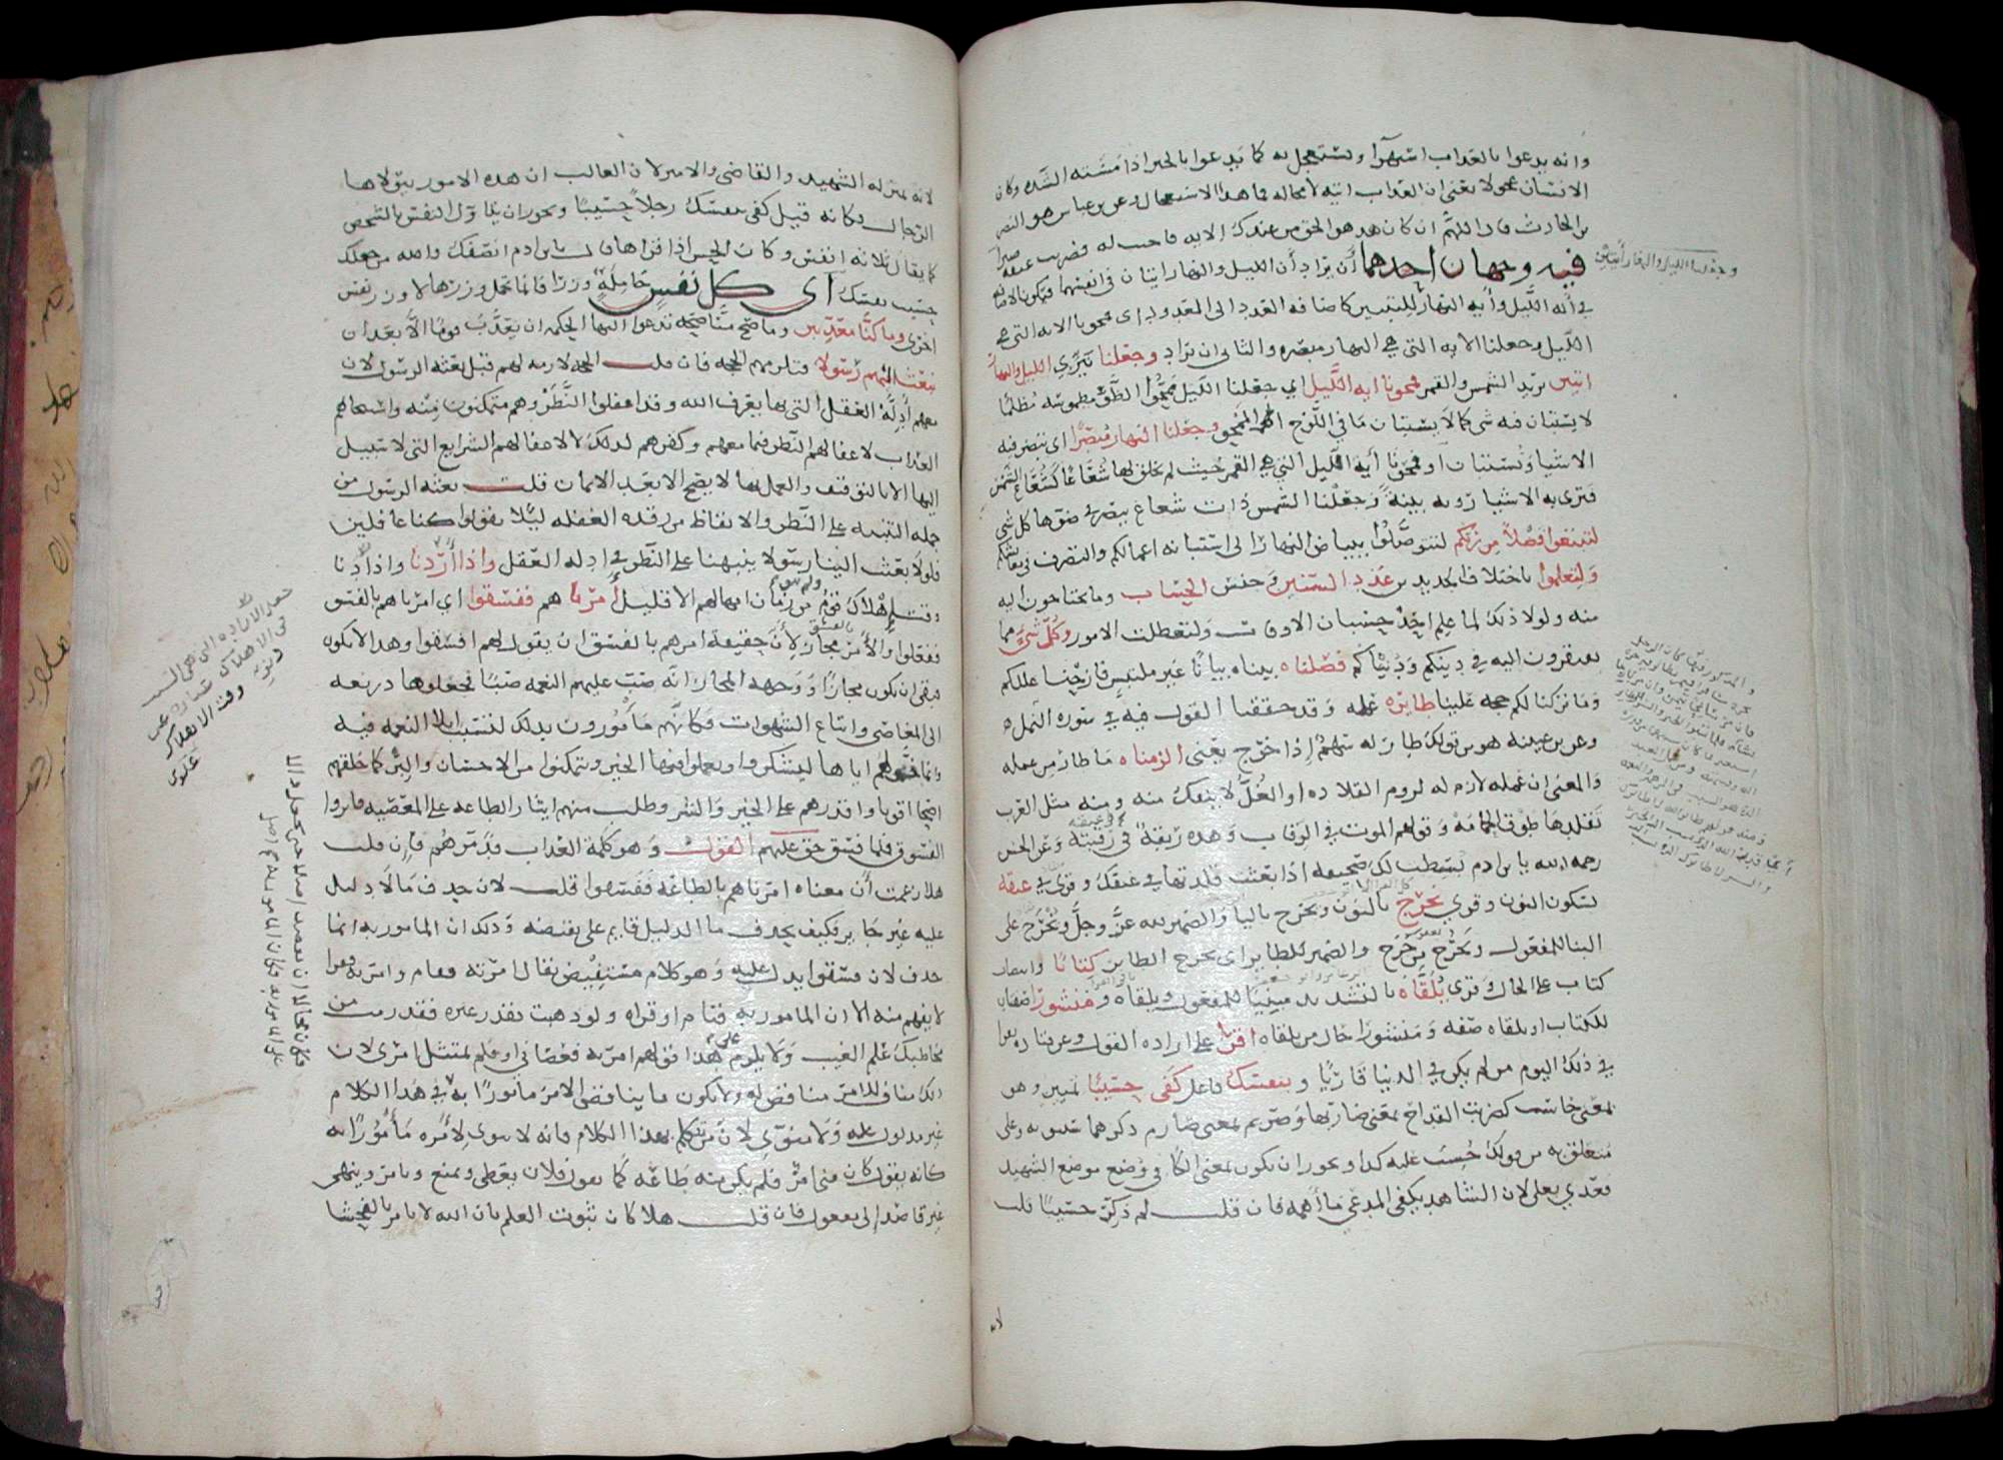 وانه يدعوا بالعذاب استهزآ ويستعجل به كما يدعوا بالخير اذا مسته الشده وكان
الانسان عجولا يعني ان العذاب اتيه لا محاله فما هذا الاستعجال وعن بن عباس هو النضر
بن الحارث قال اللهم ان كان هذا هو الحق من عندك الايه فاجيب له فضرب عنقه صبرا
وجعلنا الليل والنهار آيتين
فيه وجهان احدهما ان يراد أن الليل والنهار ايتان في انفسهما فتكون الاضافه
في أيه الليل وأيه النهار للتبيين كاضافه العدد الى المعدود اى فمحونا الايه التي هي
الليل وجعلنا الايه التي هي النهار مبصره والثاني ان يراد وجعلنا نيري الليل والنهار
ايتين يريد الشمس والقمر فمحونا ايه الليل اي جعلنا الليل ممحوا الضو مطموسه مظلما
لا يستبان فيه شي كما لا يستبان ما في اللوح الممحو وجعلنا النهار مبصرا اى تبصر فيه
الاشيا وتستبان او فمحونا أية الليل التي هي القمر حيث لم يخلق لها شعاعا كشعاع الشمس
فترى به الاشيا رويه بينة وجعلنا الشمس ذات شعاع يبصر في ضوها كل شي
لتبتغوا فضلا من ربكم لتتوصلوا ببياض النهار الى استبانه اعمالكم والتصرف في معايشكم
ولتعلموا باختلاف الجديدين عدد السنين وجنس الحساب وما تحتاجون اليه
منه ولولا ذلك لما علم احد حسبان الاوقات ولتعطلت الامور وكل شي مما
تفتقرون اليه في دينكم ودنياكم فصلناه بيناه بيانا غير ملتبس فازحنا عللكم
وما تركنا لكم حجه علينا طايره عمله وقد حققنا القول فيه في سوره النمل
وعن بن عيينه هو من قولك طار له سهم إذا خرج يعني الزمناه ما طار من عمله
والمعنى ان عمله لازم له لزوم القلاده او الغل لا ينفك منه ومنه مثل العرب
تقلدها طوق الحمامة وقولهم الموت في الرقاب وهذه ربقة في رقبته وعن الحسن
رحمه الله يا بن ادم بسطت لك صحيفه اذا بعثت قلدتها في عنقك وقرى في عنقه
بسكون النون وقرى نخرج بالنون ويخرج باليا والضمير لله عز وجل ويخرج على
البنا للمفعول ويخرج من خرج والضمير للطاير اى يخرج الطاير كتابا وانتصاب
كتاب على الحال وقرى يلقاه بالتشديد مبنيا للمفعول ويلقاه ومنشورا صفتان
للكتاب او يلقاه صفه ومنشورا حال من يلقاه اقرا على اراده القول وعن قتاده يقرا
في ذلك اليوم من لم يكن في الدنيا قاريا وبنفسك فاعل كفى حسيبا تمييز وهو
بمعنى حاسب كضريب القداح بمعنى ضاربها وصريم بمعنى صارم ذكرهما سيبويه وعلى
متعلق به من قولك حسب عليه كذا ويجوز ان يكون بمعنى الكافي وضع موضع الشهيد
فعدي بعلى لان الشاهد يكفي المدعي ما أهمه فان قلت لم ذكر حسيبا قلت
لانه بمنزله الشهيد والقاضي والامير لان الغالب ان هذه الامور يتولاها
الرجال فكانه قيل كفى بنفسك رجلا حسيبا ويجوز ان يتاول النفس بالشخص
كما يقال ثلاثه انفس وكان الحسن اذا قراها قال يا بن ادم انصفك والله من جعلك
حسيب نفسك اى كل نفس حاملة وزرا فانما تحمل وزرها لا وزر نفس
اخرى وما كنا معذبين وما صح منا صحه تدعوا اليها الحكمه ان يعذب قوما الا بعد ان
نبعث اليهم رسولا فتلزمهم الحجه فان قلت الحجه لازمه لهم قبل بعثه الرسول لان
معهم أدلة العقل التي بها يعرف الله وقد اغفلوا النظر وهم متمكنون منه واستيجابهم
العذاب لاغفالهم النظر فيما معهم وكفرهم لذلك لا لاغفالهم الشرايع التي لا سبيل
اليها الا بالتوقيف والعمل بها لا يصح الا بعد الايمان قلت بعثه الرسول من
جمله التنبيه على النظر والايقاظ من رقده الغفله ليلا يقولوا كنا غافلين
فلولا بعثت الينا رسولا ينبهنا على النظر في ادله العقل واذا أردنا واذا دنا
وقت إهلاك قوم ولم يبق من زمان امهالهم الا قليل أمرنا هم ففسقوا اي امرناهم بالفسق
ففعلوا والأمر مجاز لأن حقيقة امرهم بالفسق ان يقول لهم افسقوا وهذا لا يكون
فبقي ان يكون مجازا ووجه المجاز انه صب عليهم النعمه صبا فجعلوها ذريعه
الى المعاصي واتباع الشهوات فكانهم مأمورون بذلك لتسبب ايلا النعمه فيه
وانما خولهم اياها ليشكروا ويعملوا فيها الخير ويتمكنوا من الاحسان والبر كما خلقهم
اصحا اقويا واقدرهم على الخير والشر وطلب منهم ايثار الطاعه على المعصيه فاثروا
الفسوق فلما فسقوا حق عليهم القول وهو كلمة العذاب فدمرهم فإن قلت
هلا زعمت أن معناه امرناهم بالطاعة ففسقوا قلت لان حذف مالا دليل
عليه غير جايز فكيف يحذف ما الدليل قايم على نقيضه وذلك ان المامور به انما
حذف لان فسقوا يدل عليه وهو كلام مستفيض يقال امرته فقام وامرته فقرا
لا يفهم منه الا ان المامور به قيام او قراه ولو ذهبت تقدر غيره فقد رمت من
مخاطبك علم الغيب ولا يلزم على هذا قولهم امرته فعصاني او فلم يمتثل امري لان
ذلك مناف للامر مناقض له ولا يكون ما يناقض الامر مامورا به في هذا الكلام
غير مدلول عليه ولا منوي لان من تكلم بهذا الكلام فانه لا ينوي لأمره مأمورا به
كانه يقول كان مني امر فلم يكن منه طاعة كما يقول فلان يعطي ويمنع ويامر وينهى
غير قاصد الى مفعول فان قلت هلا كان ثبوت العلم بان الله لا يامر بالفحشا